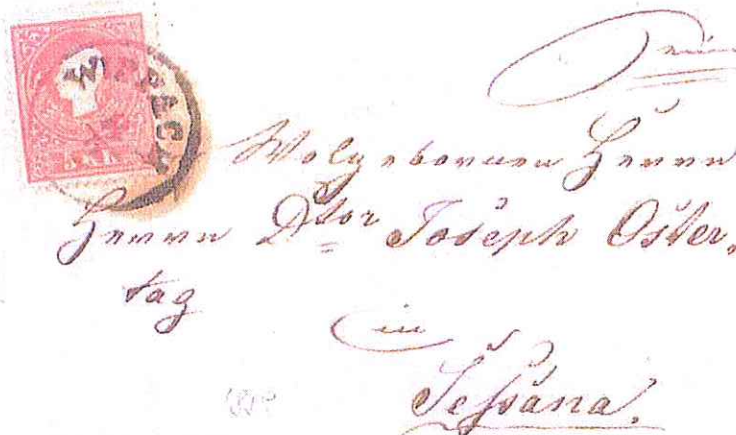 WIPPACH
5 KR
Wolgebornen Herrn
Herrn Dtor Joseph Oster,
tag
in
Seßana.